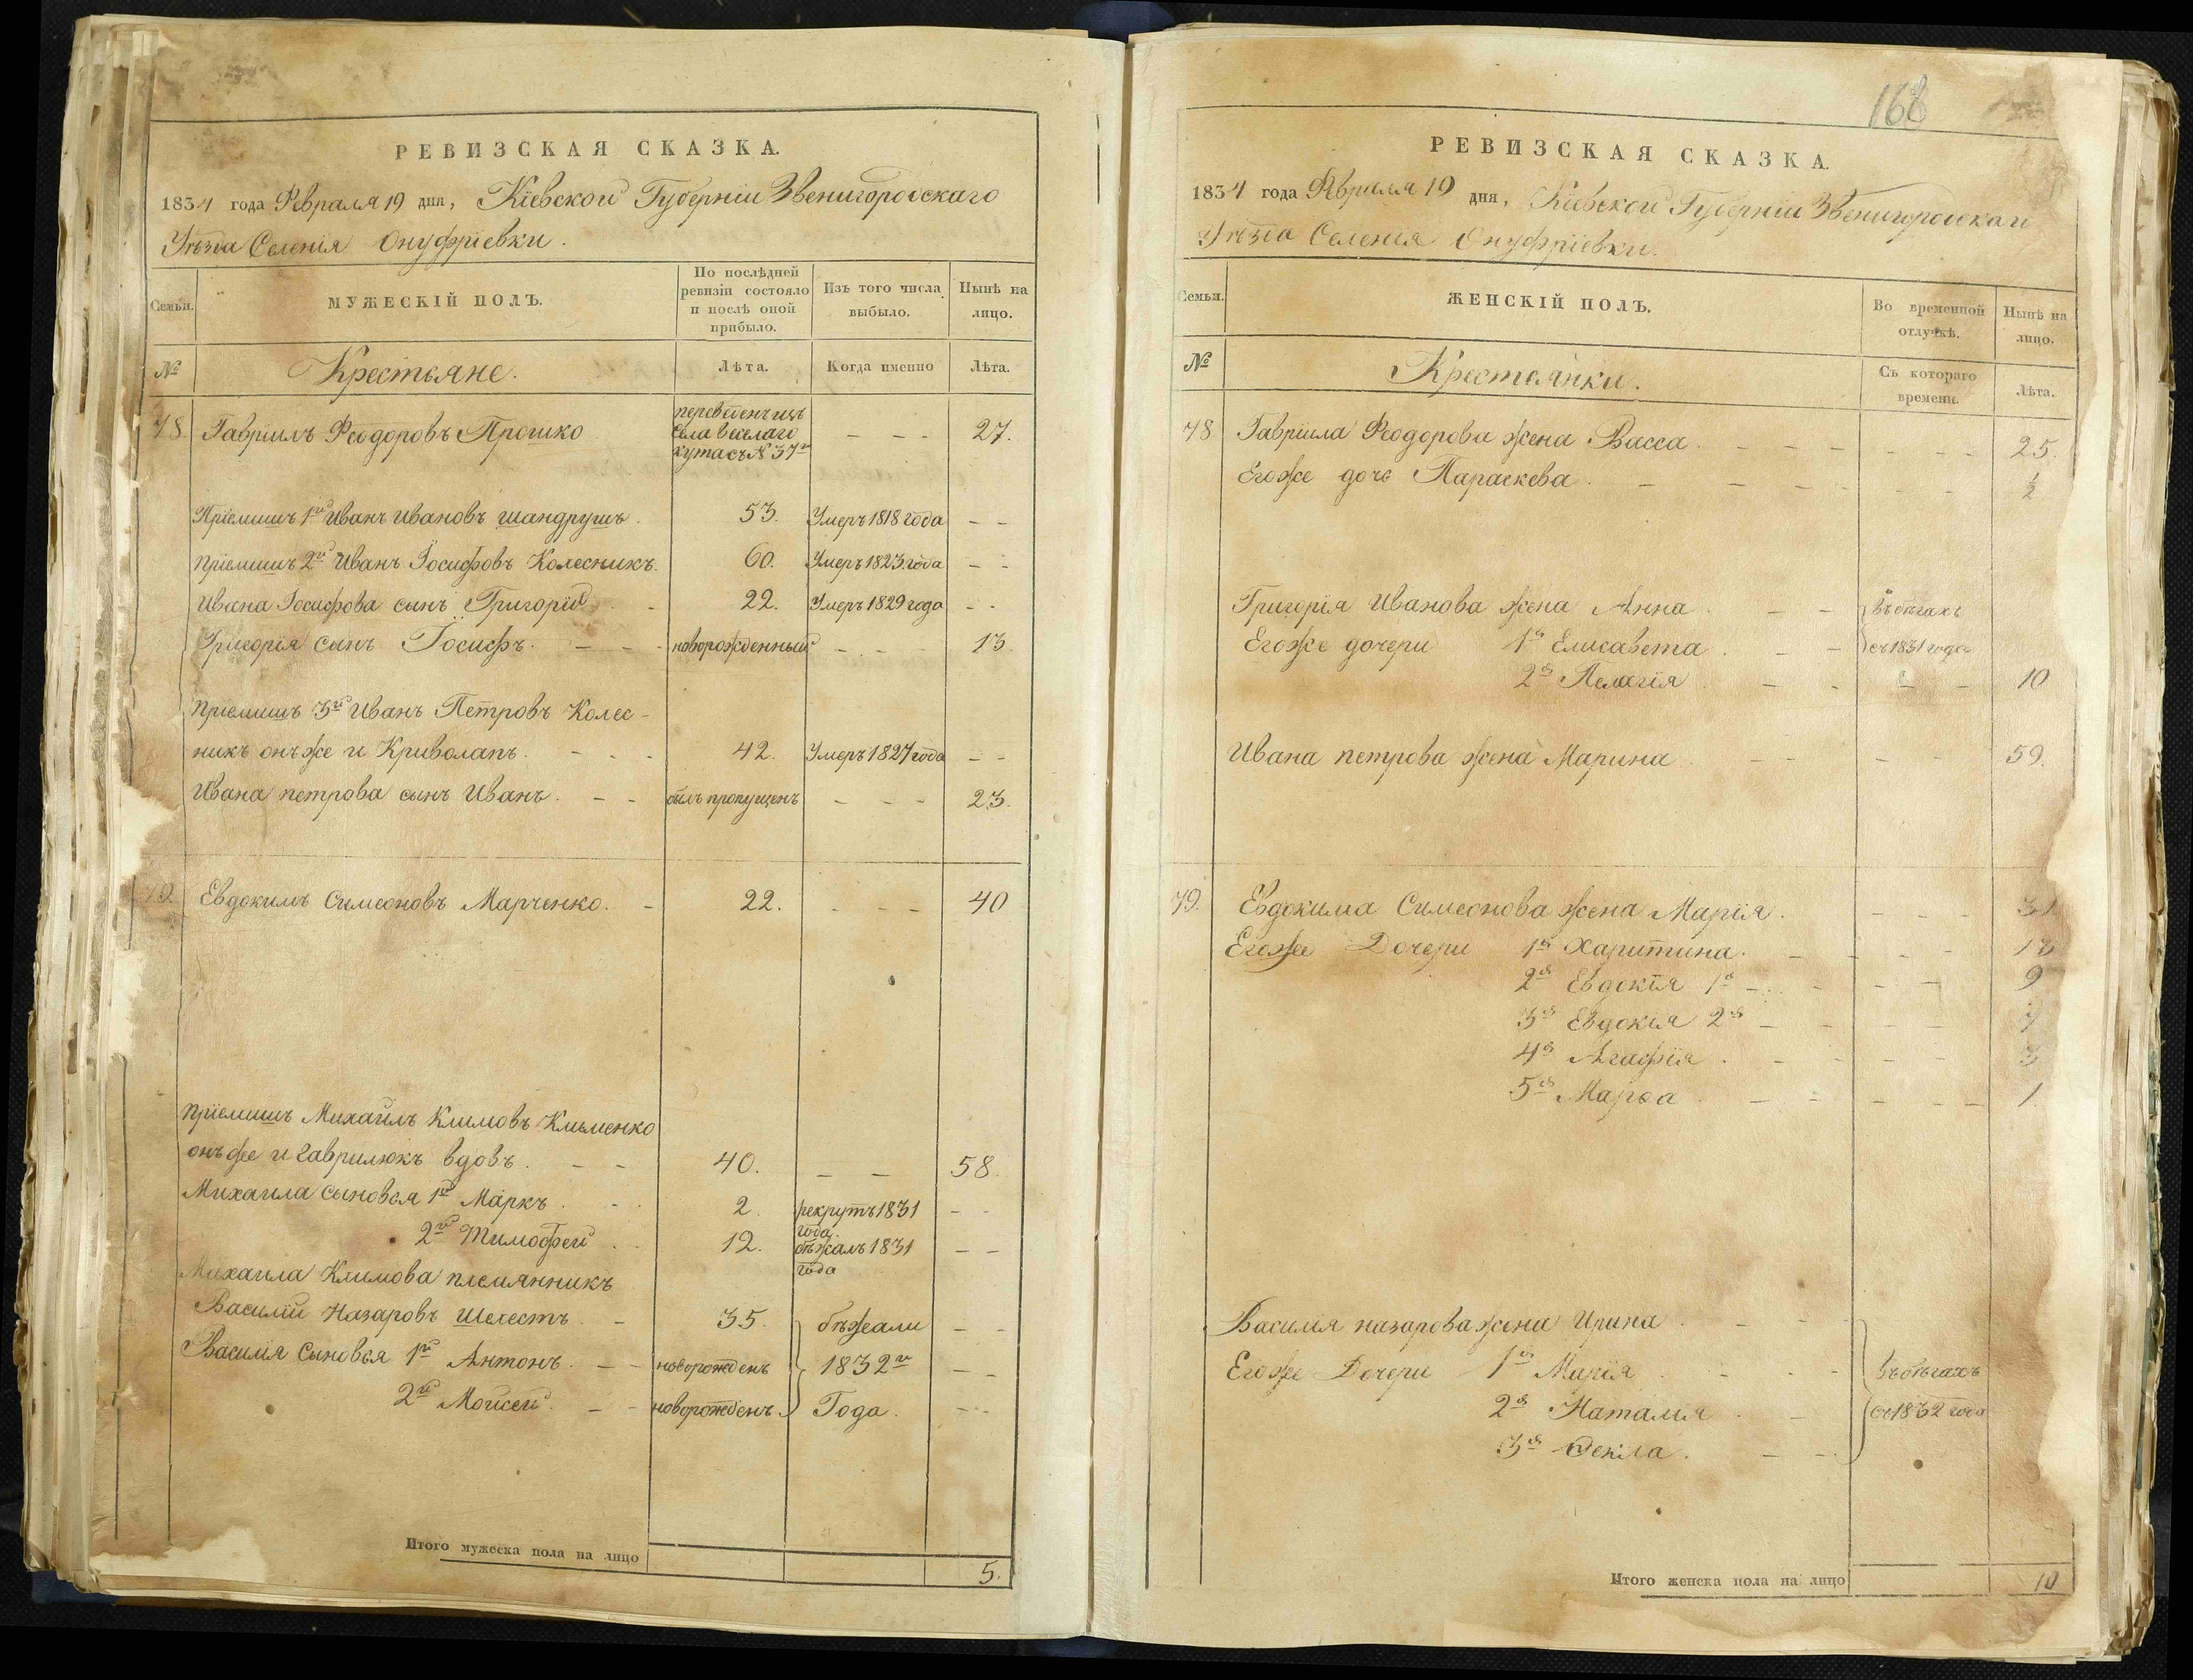 РЕВИЗСКАЯ СКАЗКА.
1834 года Февраля 19 дня, Кіевской Губерніи Звенигородскаго
Уѣзда Селенія Онуфріевки.
Семьи.
МУЖЕСКІЙ ПОЛЪ.
По послѣдней ревизіи состояло и послѣ оной прибыло.
Изъ того числа выбыло.
Нынѣ на лицо.
№
Крестьяне.
Лѣта.
Когда именно
Лѣта.
78. Гавріилъ Феодоровъ Прошко
села Веселаго
кута съ № 37го
- - - 27.
Пріемышъ 1й Иванъ Ивановъ Шандрушъ. 53. Умеръ 1818 года - -
Пріемышъ 2й Иванъ Іосифовъ Колесникъ. 60. Умеръ 1823 года - -
Ивана Іосифова сынъ Григорій - 22. Умеръ 1829 года - -
Григорія сынъ Іосифъ. - - - новорожденный - - - 13.
Пріемышъ 3й Иванъ Петровъ Колес-
никъ онъ же и Криволапъ. - - - 42. Умеръ 1827 года - -
Ивана петрова сынъ Иванъ. - - былъ пропущенъ - - - 23.
79. Евдокимъ Симеоновъ Марченко. - 22. - - - 40
Пріемышъ Михаилъ Климовъ Клименко
онъ же и Гаврилюкъ вдовъ. - - 40. - - 58.
Михаила сыновья 1й Маркъ. - - 2. рекрутъ 1831 года. - -
2й Тимофей. - 12. бѣжалъ 1831 года - -
Михаила Климова племянникъ
Василій Назаровъ Шелестъ. - 35. бѣжали - -
Василія Сыновья 1й Антонъ. - - новорожденъ 1832го - -
2й Моисей. - - новорожденъ. Года. - -
Итого мужеска пола на лицо 5.
168
РЕВИЗСКАЯ СКАЗКА.
1834 года Февраля 19 дня, Кіевской Губерніи Звенигородскаго
Уѣзда Селенія Онуфріевки.
Семьи.
ЖЕНСКІЙ ПОЛЪ.
Во временной отлучкѣ.
Нынѣ на лицо.
№
Крестьянки.
Съ котораго времени.
Лѣта.
78 Гавріила Феодорова жена Васса. - - - 25.
Егоже дочь Параскева. - - - ½
Григорія Иванова жена Анна. - - въ бѣгахъ
Егоже дочери 1я Елисавета. - - съ 1831 года
2я Пелагія - - - 10
Ивана петрова жена Марина - - - 59.
79. Евдокима Симеонова жена Марія. - - -
Егоже Дочери 1я Харитина. - - -
2я Евдокія 1я - - - 9
3я Евдокія 2я - - - 7
4я Агафія. - - - 3
5я Марѳа - - - 1.
Василія назарова жена Ирина. - -
Егоже Дочери 1я Марія. - - въ бѣгахъ
2я Наталія. - съ 1832 года
3я Ѳекла. - -
Итого женска пола на лицо 10